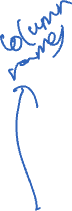 column
names